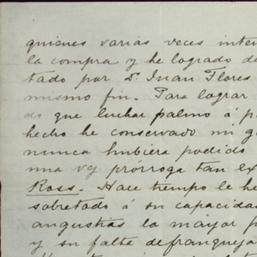 quienes varias veces inter
la compra y he logrado de
tado por D. Juan Flores
mismo fin. Para lograr
do que luchar palmo á p
hecho he conservado mi g
nunca hubiera podido
una prórroga tan ex
Ross. Hace tiempo le he
sobretado á su capacidad
angustias la mayor p
y su falta de franqueza